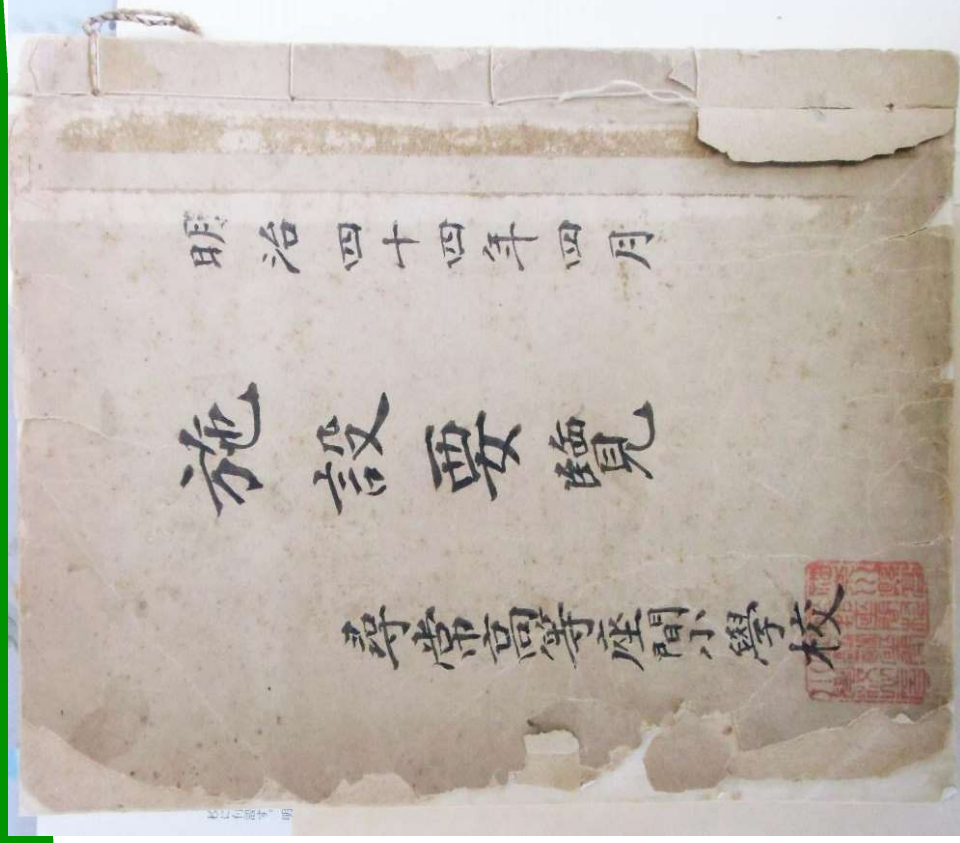 明治四十四年四月
施設要覽
尋常高等座間小學校